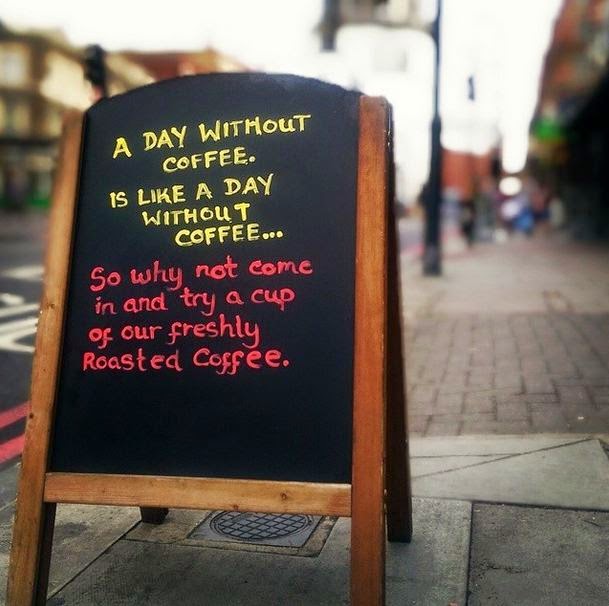 A DAY WITHOUT
COFFEE.
IS LIKE A DAY
WITHOUT
COFFEE...
So why not come
in and try a cup
of our freshly
Roasted Coffee.